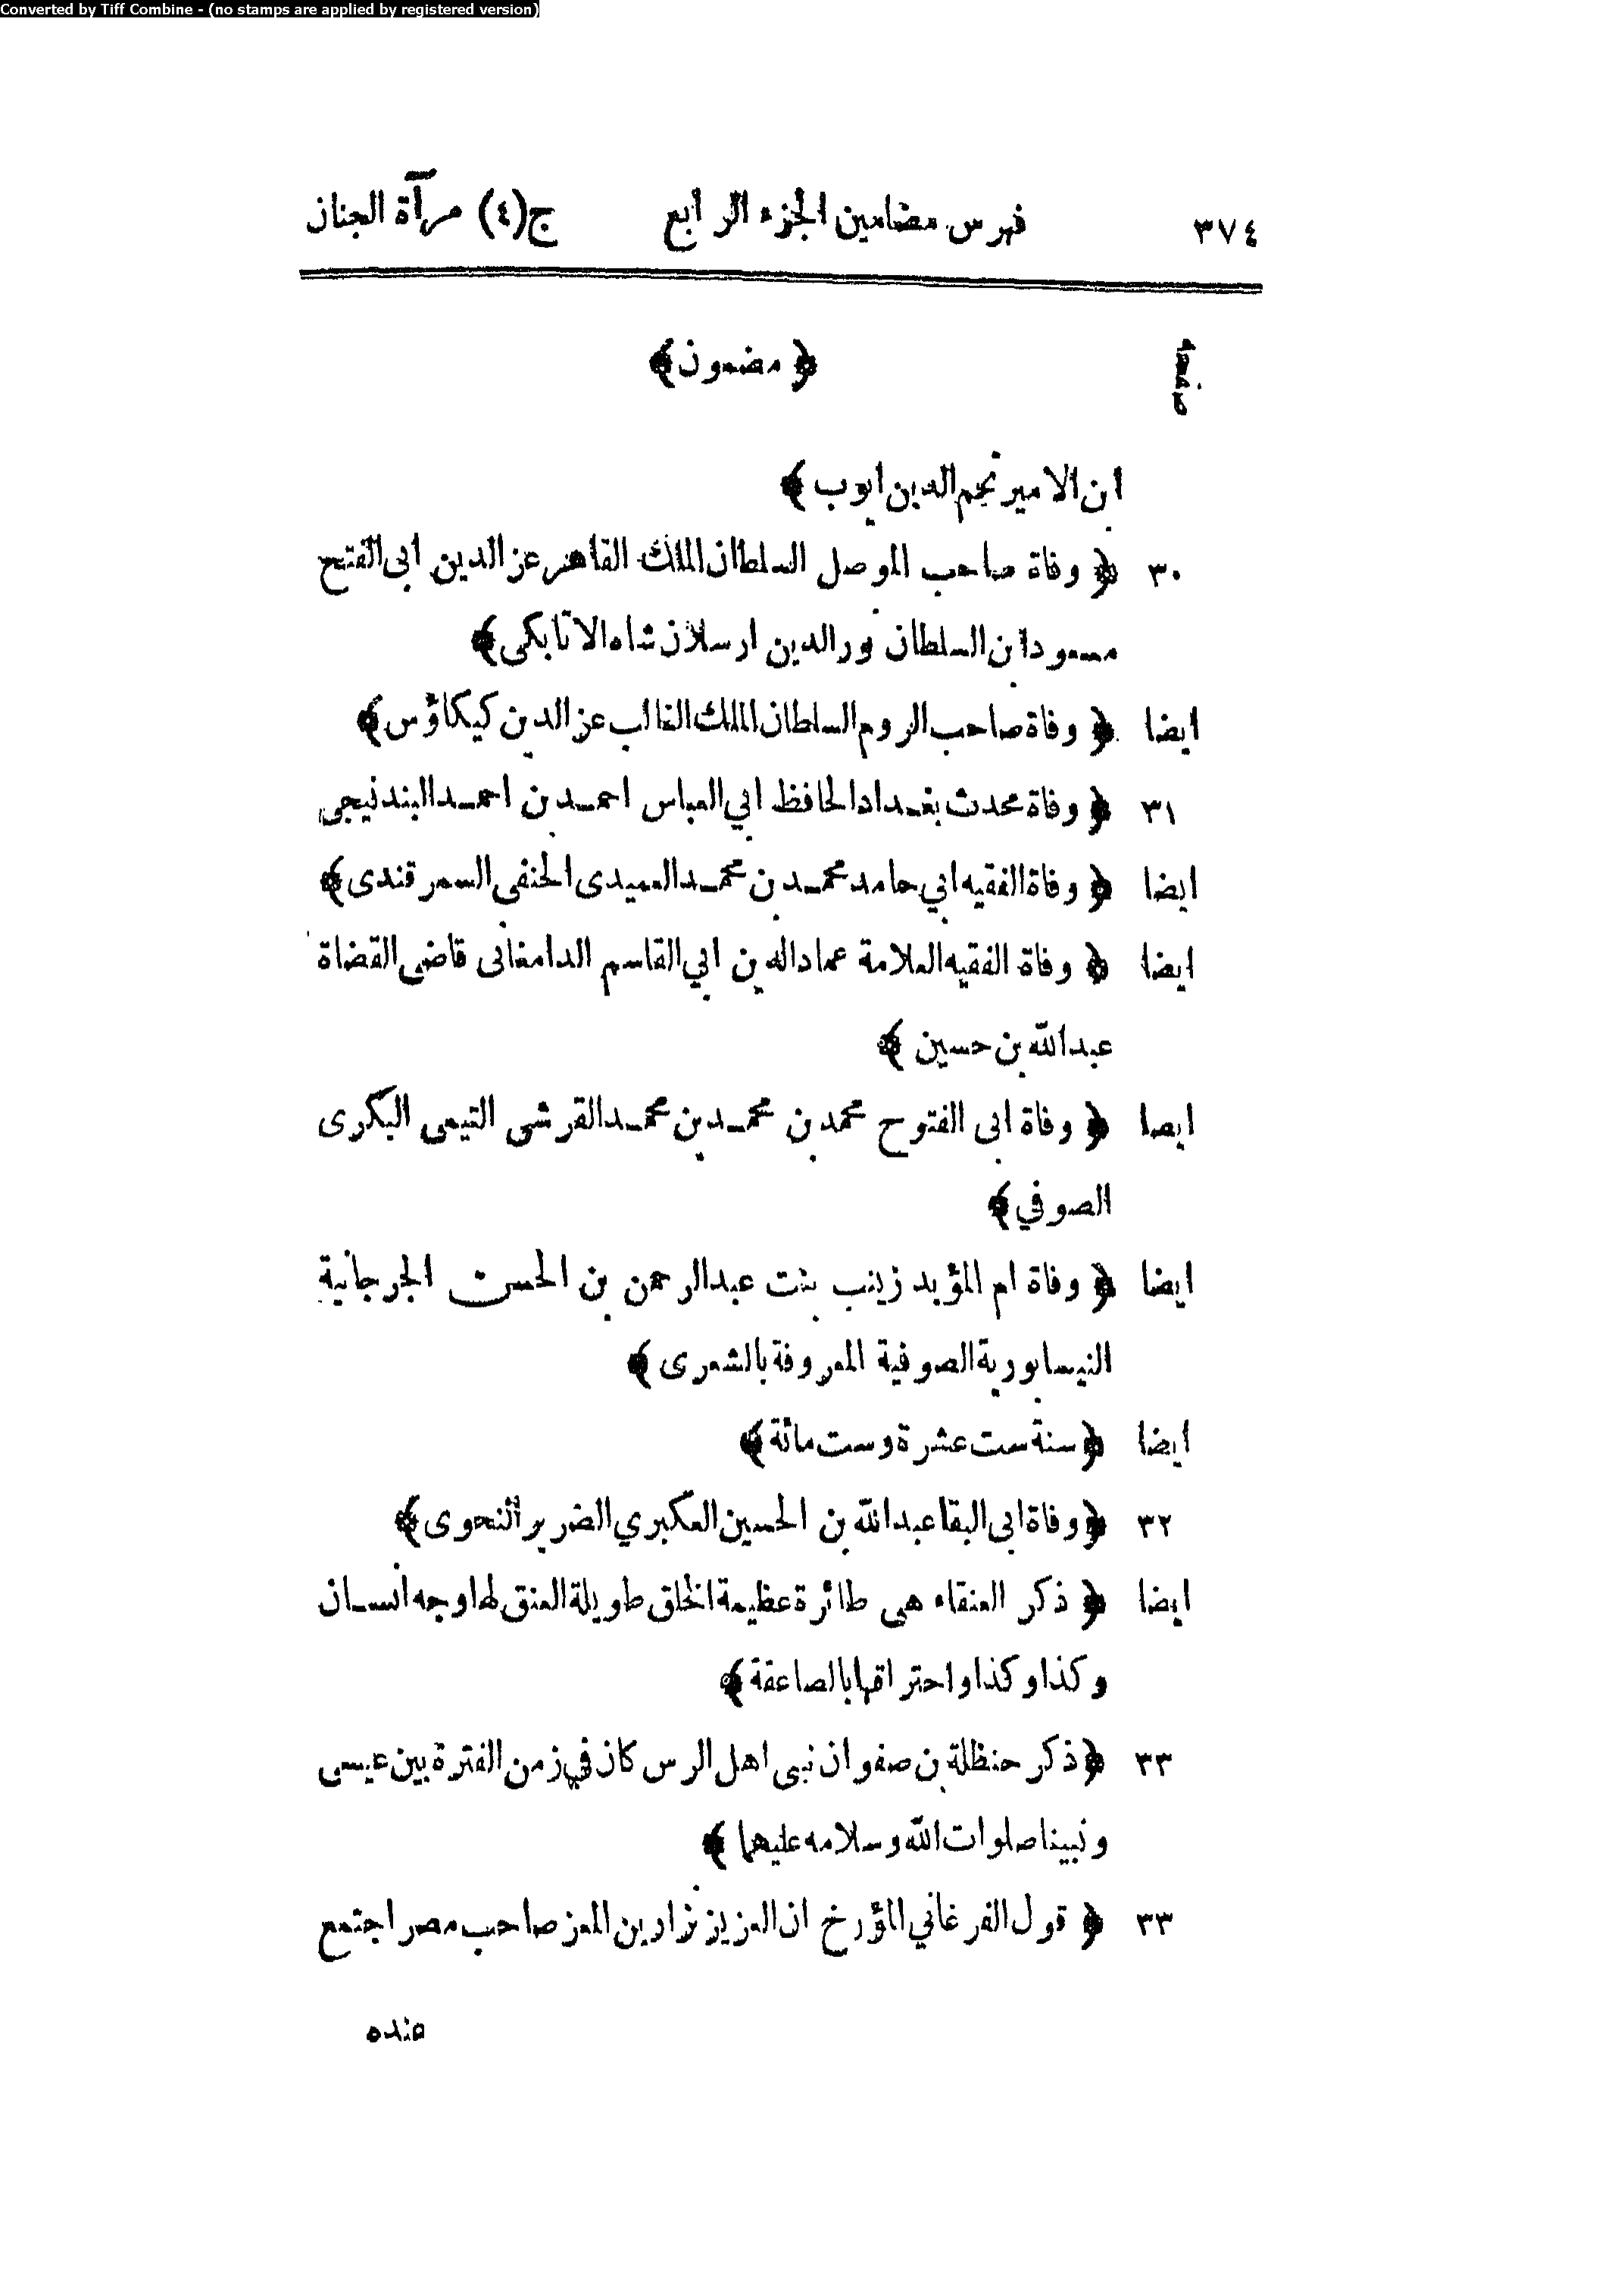 Converted by Tiff Combine - (no stamps are applied by registered version)
٣٧٤ فهرس مضامين الجزء الرابع ج(٤) مرآة الجنان
صفحه ﴿ مضمون﴾
ابن الامير نجم الدين ايوب ﴾
٣٠ ﴿ وفاة صاحب الموصل السلطان الملك القاهر عز الدين ابى الفتح
مسعود ابن السلطان نور الدين ارسلان شاه الاتابكى﴾
ايضا ﴿ وفاة صاحب الروم السلطان الملك الغالب عز الدين كيكاؤس﴾
٣١ ﴿ وفاة محدث بغداد الحافظ ابي العباس احمد بن احمد البندنيجى
ايضا ﴿ وفاة الفقيه ابي حامد محمد بن محمد العميدى الحنفى السمرقندى﴾
ايضا ﴿ وفاة الفقيه العلامة عماد الدين ابي القاسم الدامغانى قاضى القضاة
عبد الله بن حسين ﴾
ايضا ﴿ وفاة ابى الفتوح محمد بن محمد بن محمد القرشى التيمى البكرى
الصوفي﴾
ايضا ﴿ وفاة ام المؤيد زينب بنت عبد الرحمن بن الحسن الجرجانية
النيسابورية الصوفية المعروفة بالشعرى ﴾
ايضا ﴿ سنة ست عشرة وست مائة﴾
٣٢ ﴿ وفاة ابى البقا عبد الله بن الحسين العكبري الضرير النحوى﴾
ايضا ﴿ ذكر العنقاء هى طائرة عظيمة الخلق طويلة العنق لها وجه انسان
وكذا وكذا واحتراقها بالصاعقة﴾
٣٣ ﴿ ذكر حنظلة بن صفوان نبى اهل الرس كان في زمن الفترة بين عيسى
ونبينا صلوات الله وسلامه عليهما ﴾
٣٣ ﴿ قول الفرغاني المؤرخ ان العزيز نزار بن المعز صاحب مصر اجتمع
عنده